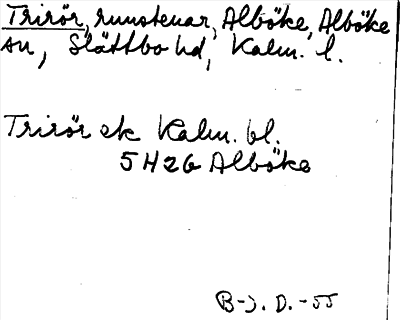 Trirör, runstenar, Alböke, Alböke
sn, Slättbo hd, Kalm. l.
Trirör ek Kalm. bl.
5H2G Alböke
B-J. D. -55